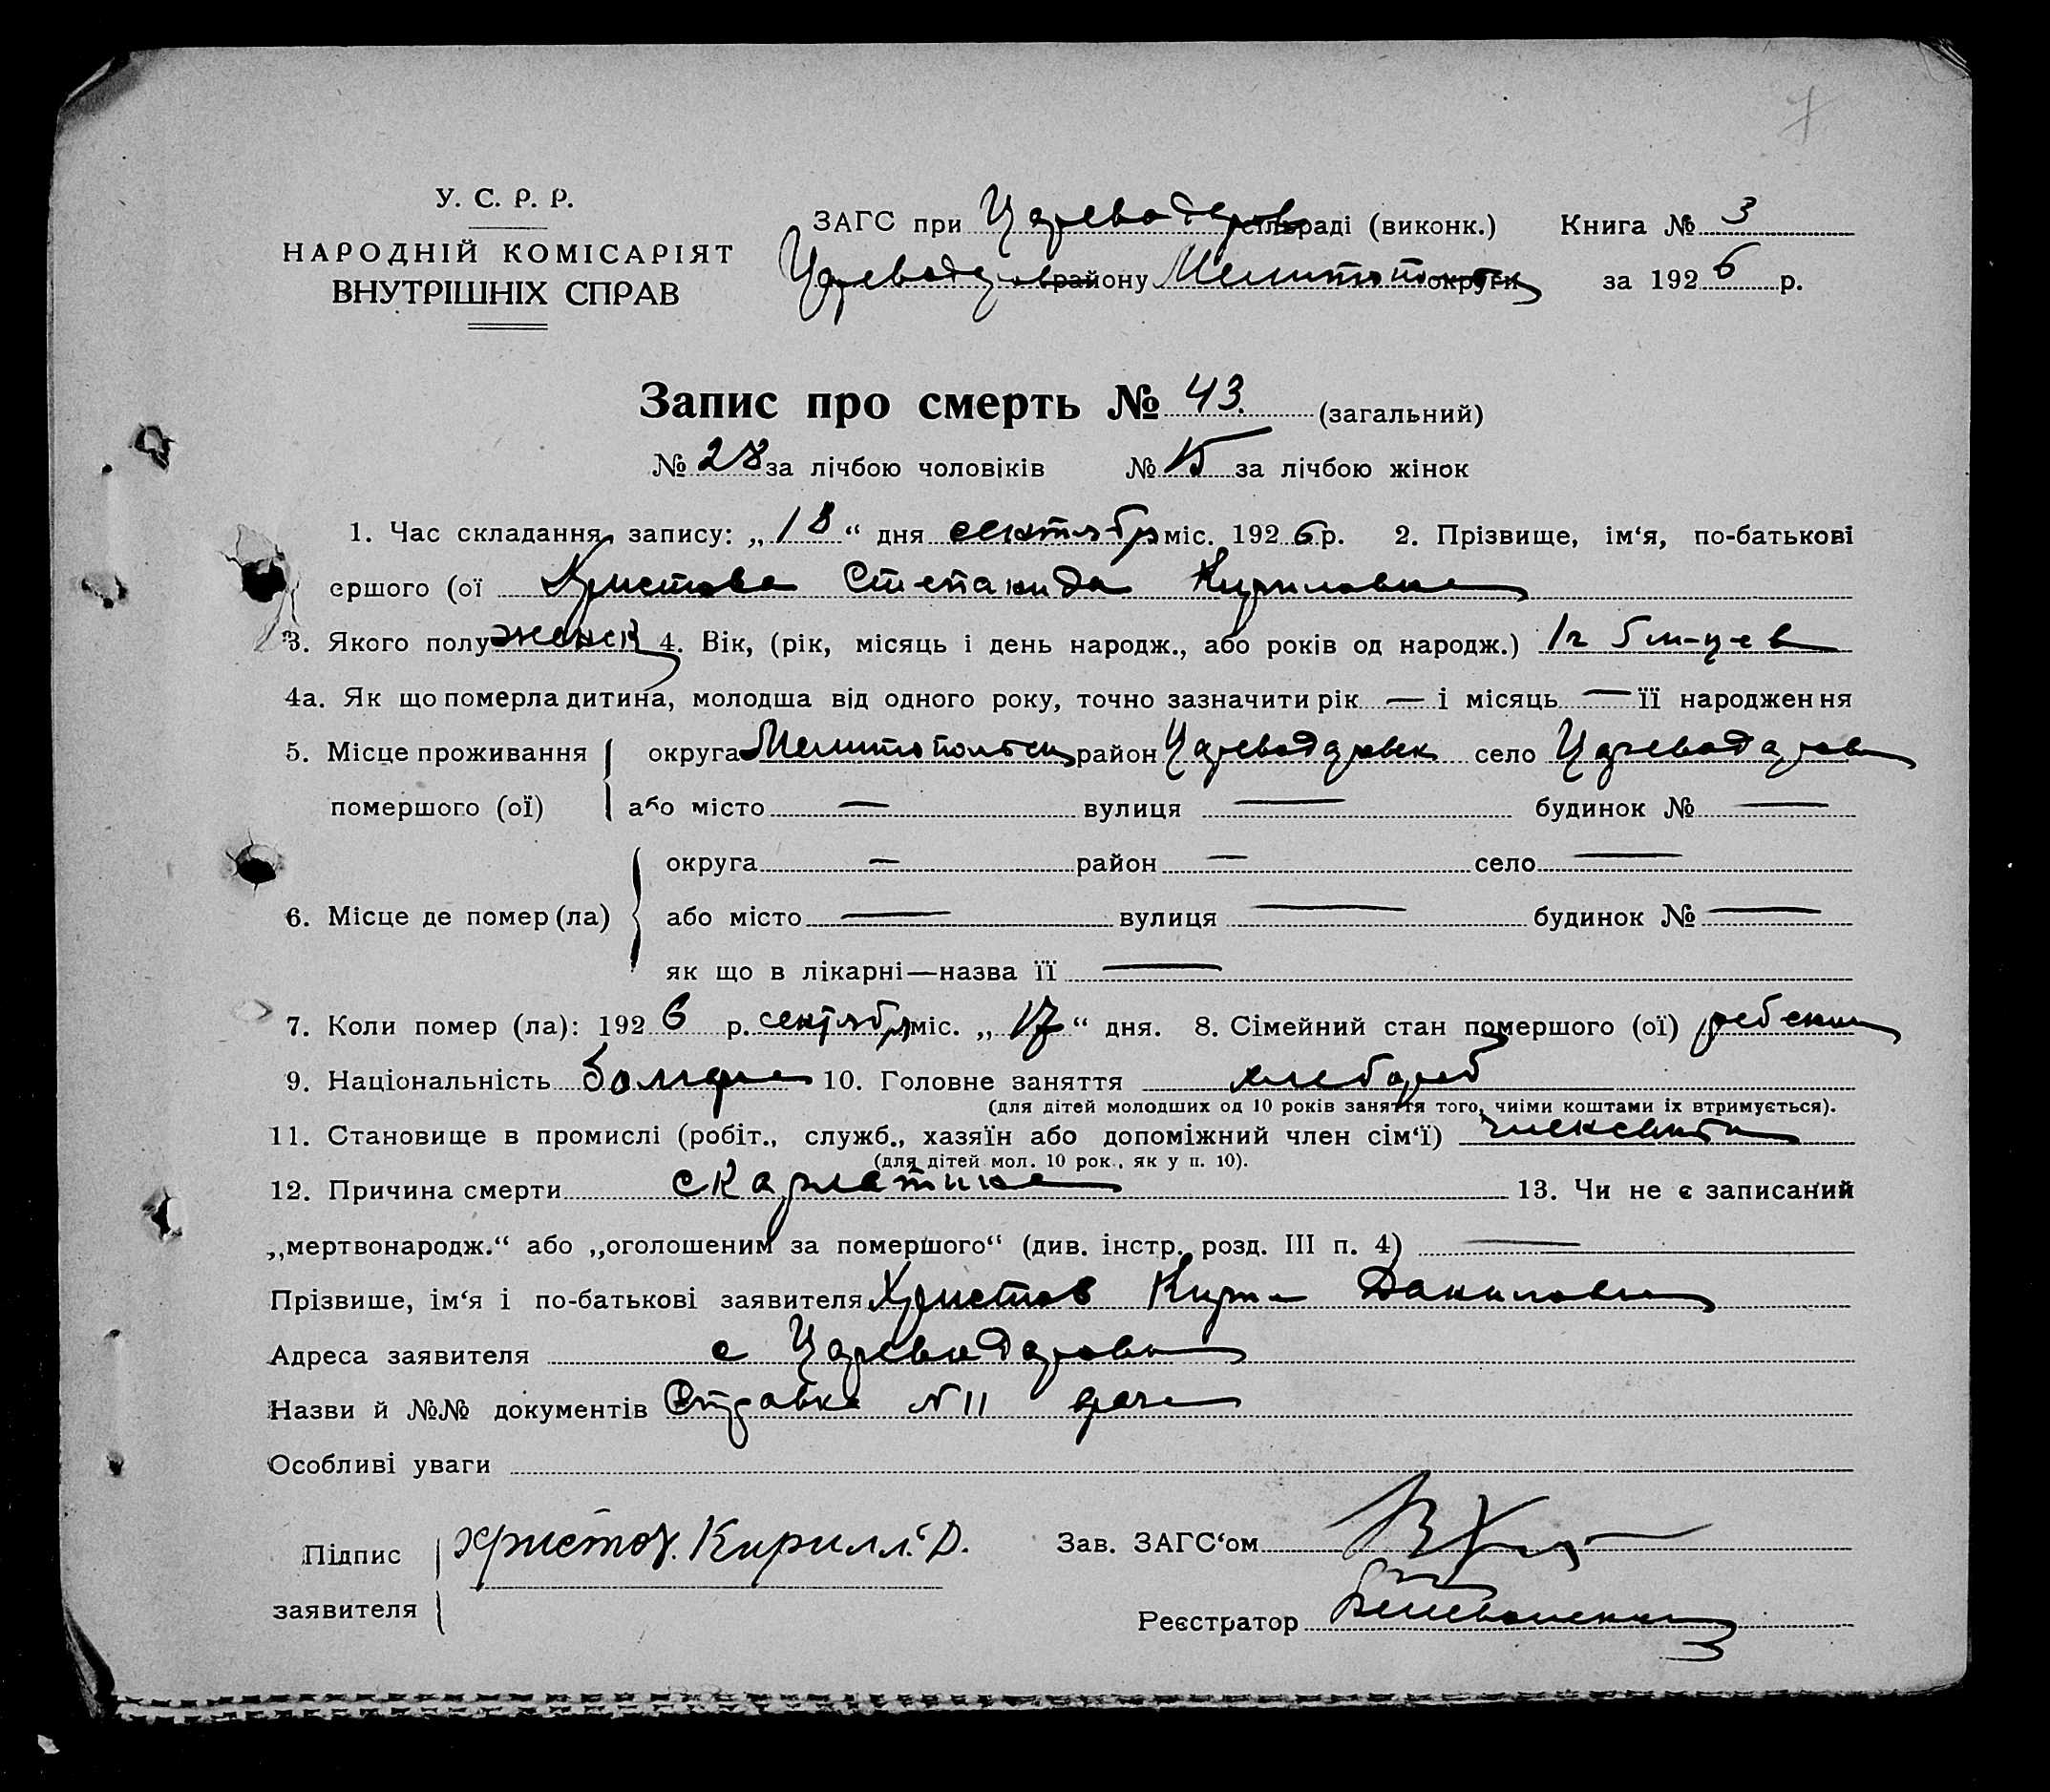 7
У. С. Р. Р.
НАРОДНІЙ КОМІСАРІЯТ
ВНУТРІШНІХ СПРАВ
ЗАГС при Цареводаров сільраді (виконк.) Книга № 3
Цареводаров району Мелитопол округи за 1926 р.
Запис про смерть № 43. (загальний)
№ 28 за лічбою чоловіків № 15 за лічбою жінок
1. Час складання запису: „18“ дня сентября міс. 1926 р. 2. Прізвище, ім‘я, по-батькові
ершого (ої Христова Степанида Кириловна
3. Якого полу женск 4. Вік, (рік, місяць і день народж., або років од народж.) 1 г 5 м-цев
4а. Як що померла дитина, молодша від одного року, точно зазначити рік — і місяць — її народження
5. Місце проживання округа Мелитопольск район Цареводаровск село Цареводаровка
помершого (ої) або місто — вулиця — будинок № —
округа — район — село —
6. Місце де помер (ла) або місто — вулиця — будинок № —
як що в лікарні—назва її —
7. Коли помер (ла): 1926 р. сентября міс. „17“ дня. 8. Сімейний стан помершого (ої) ребенок
9. Національність Болгарка 10. Головне заняття хлебороб
(для дітей молодших од 10 років заняття того, чиїми коштами їх втримується).
11. Становище в промислі (робіт., служб., хазяїн або допоміжний член сім‘ї) член семьи
(для дітей мол. 10 рок., як у п. 10).
12. Причина смерти скарлатина 13. Чи не є записаний
„мертвонародж.“ або „оголошеним за помершого“ (див. інстр. розд. III п. 4) —
Прізвише, ім‘я і по-батькові заявителя Христов Кирил Данилович
Адреса заявителя с Цареводаровка
Назви й №№ документів Справка N 11 врача
Особливі уваги
Підпис Христов. Кирилл. Д. Зав. ЗАГС‘ом
заявителя Реєстратор